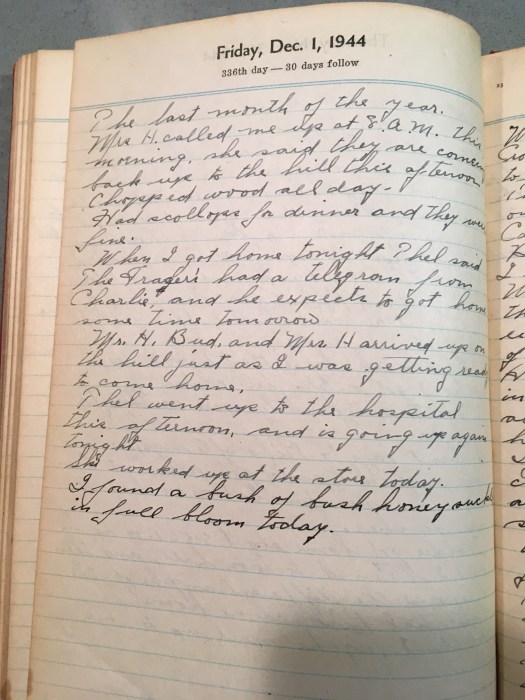 Friday, Dec. 1, 1944
336th day — 30 days follow
The last month of the year.
Mrs H. called me up at 8. A.M. this
morning. she said they are
back up to the hill this afternoon
Chopped wood all day-
Had scollops for dinner and they
fine.
When I got home tonight Phel said
The Frager's had a telegram from
Charlie, and he expects to got home
some time tomorrow
Mr. H. Bud, and Mrs H arrived up on
the hill just as I was getting
to come home.
Phel went up to the hospital
this afternoon, and is going up again
tonight
She worked up at the store today.
I found a bush of bush honey
in full bloom today.